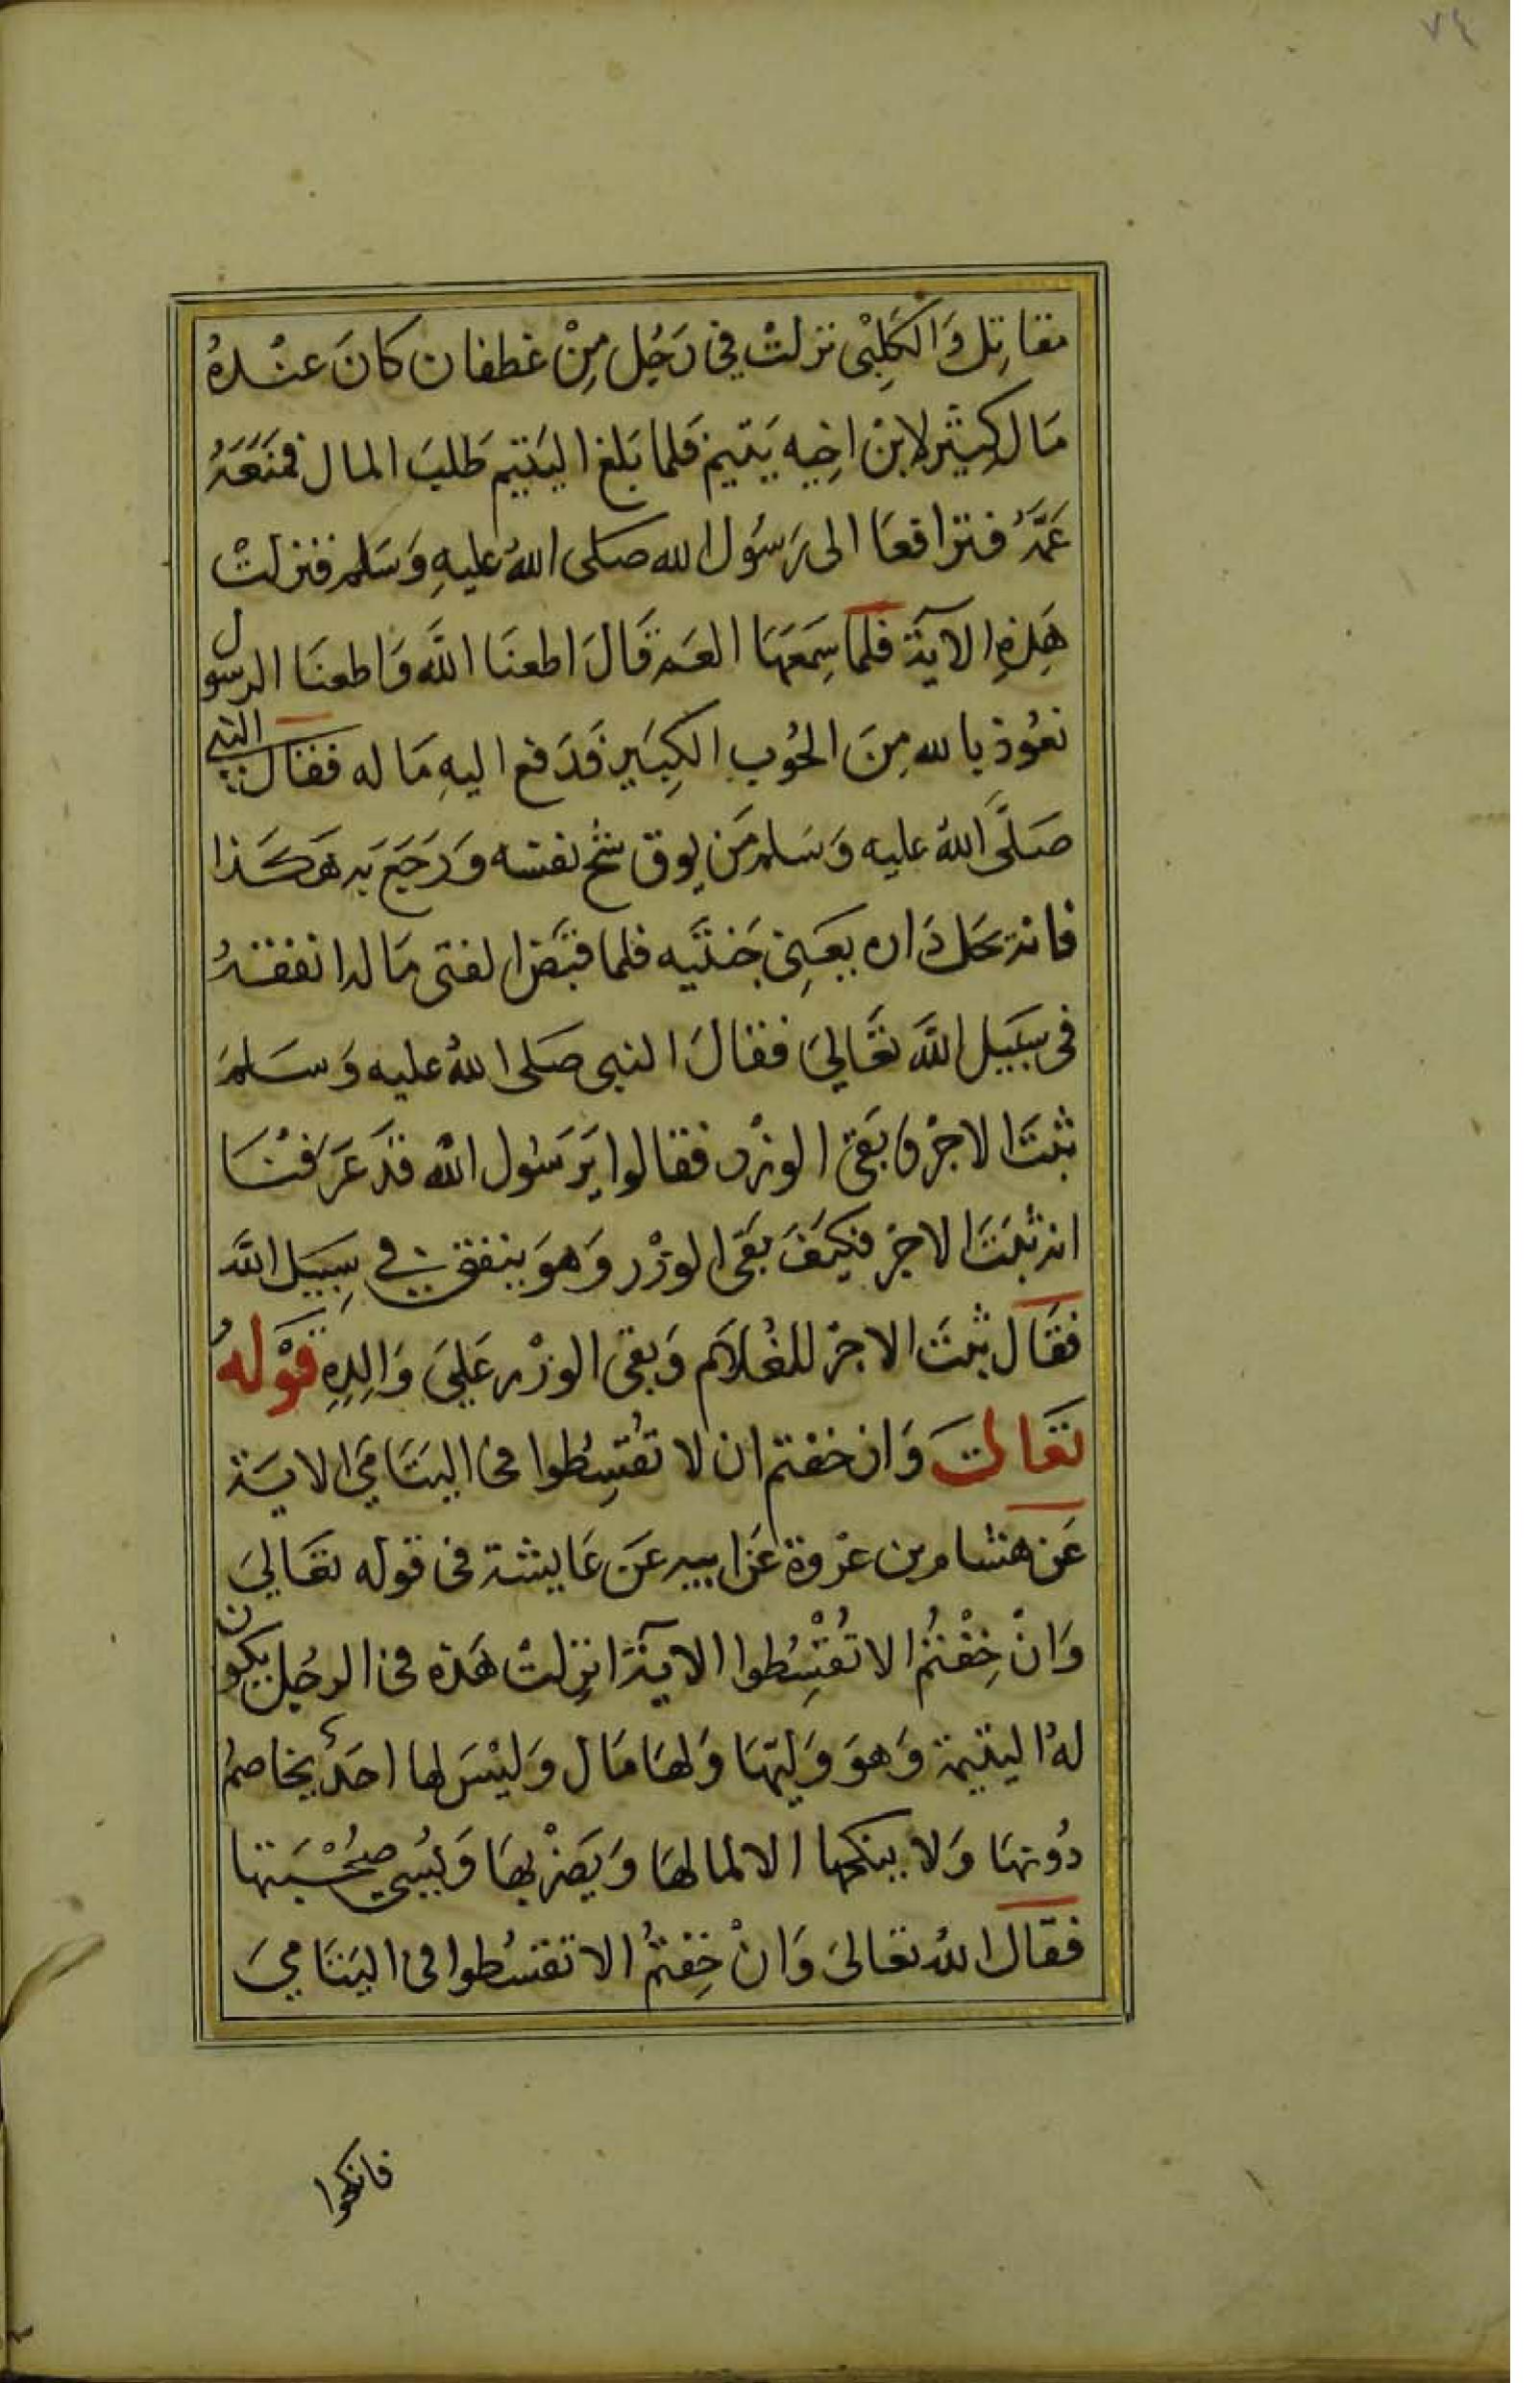 ٧٤
مقاتِل وَالكَلِبْى نزلتْ فِي رَجُل مِنْ غطفان كانَ عنْدهُ
مَال كِثير لابن اخِيه يَتيم فلما بَلغ اليَتيم طَلبَ المال فمنَعَهُ
عَمَّهُ فترافعَا الى رَسُول الله صَلى اللهُ عليهِ وَسَلم فنزلتْ
هَذِهِ الآية فلما سِمَعَهَا العَم قَالَ اطعنَا اللَّه وَاطعنَا الرسول
نعُوذ بالله مِنَ الحُوب الكِبَير فَدَفع اليهِ مَا له فقال النبي
صَلَّى اللهُ عليه وَسَلم مَن يوق شح نفسه وَرَجَعَ به هَكَذا
فانه يحَل دَاره يعَنِى جَنتَيه فلما قبَضَ الفتى مَاله انفقهُ
فى سَبَيل اللَّه تعَالىَ فقالَ النبى صَلى اللهُ عليه وَسَلمَ
ثبتَ الاجرْ وَبَقىَ الوزرْ فقالوا يَرَسُول اللَّه قدَ عَرَفنْاَ
انه ثبَتَ الاجرْ فكيَفَ بَقىَ الوزْر وَهوَ ينفق في سِبَيل اللَّه
فقَال ثبتَ الاجرْ للغُلاَم وَبقى الوزْر عَلىَ وَالِدِهِ قَوْلهُ
تعَالىَ وَان خفتم ان لا تُقسِطُوا فى اليتَامَى الايَة
عَن هشام بن عرْوة عَن ابيه عَن عَايشة فى قوله تعَالىَ
وَانْ خِفْتُمْ الا تُقْسِطُوا الآية انزِلتْ هَذه فى الرجُل يكون
لهُ اليتيمة وَهوَ وَليّهَا وَلهَا مَال وَليْسَ لها احَدٌ يخاصم
دُونهَا وَلا ينكحها الا لمالهَا وَيَضرْ بهَا وَيُسِي صُحْبَتها
فقال اللهُ تعالىَ وَانْ خِفتُمْ الا تقسُطوا فى اليَتَامىَ
فانكحوا